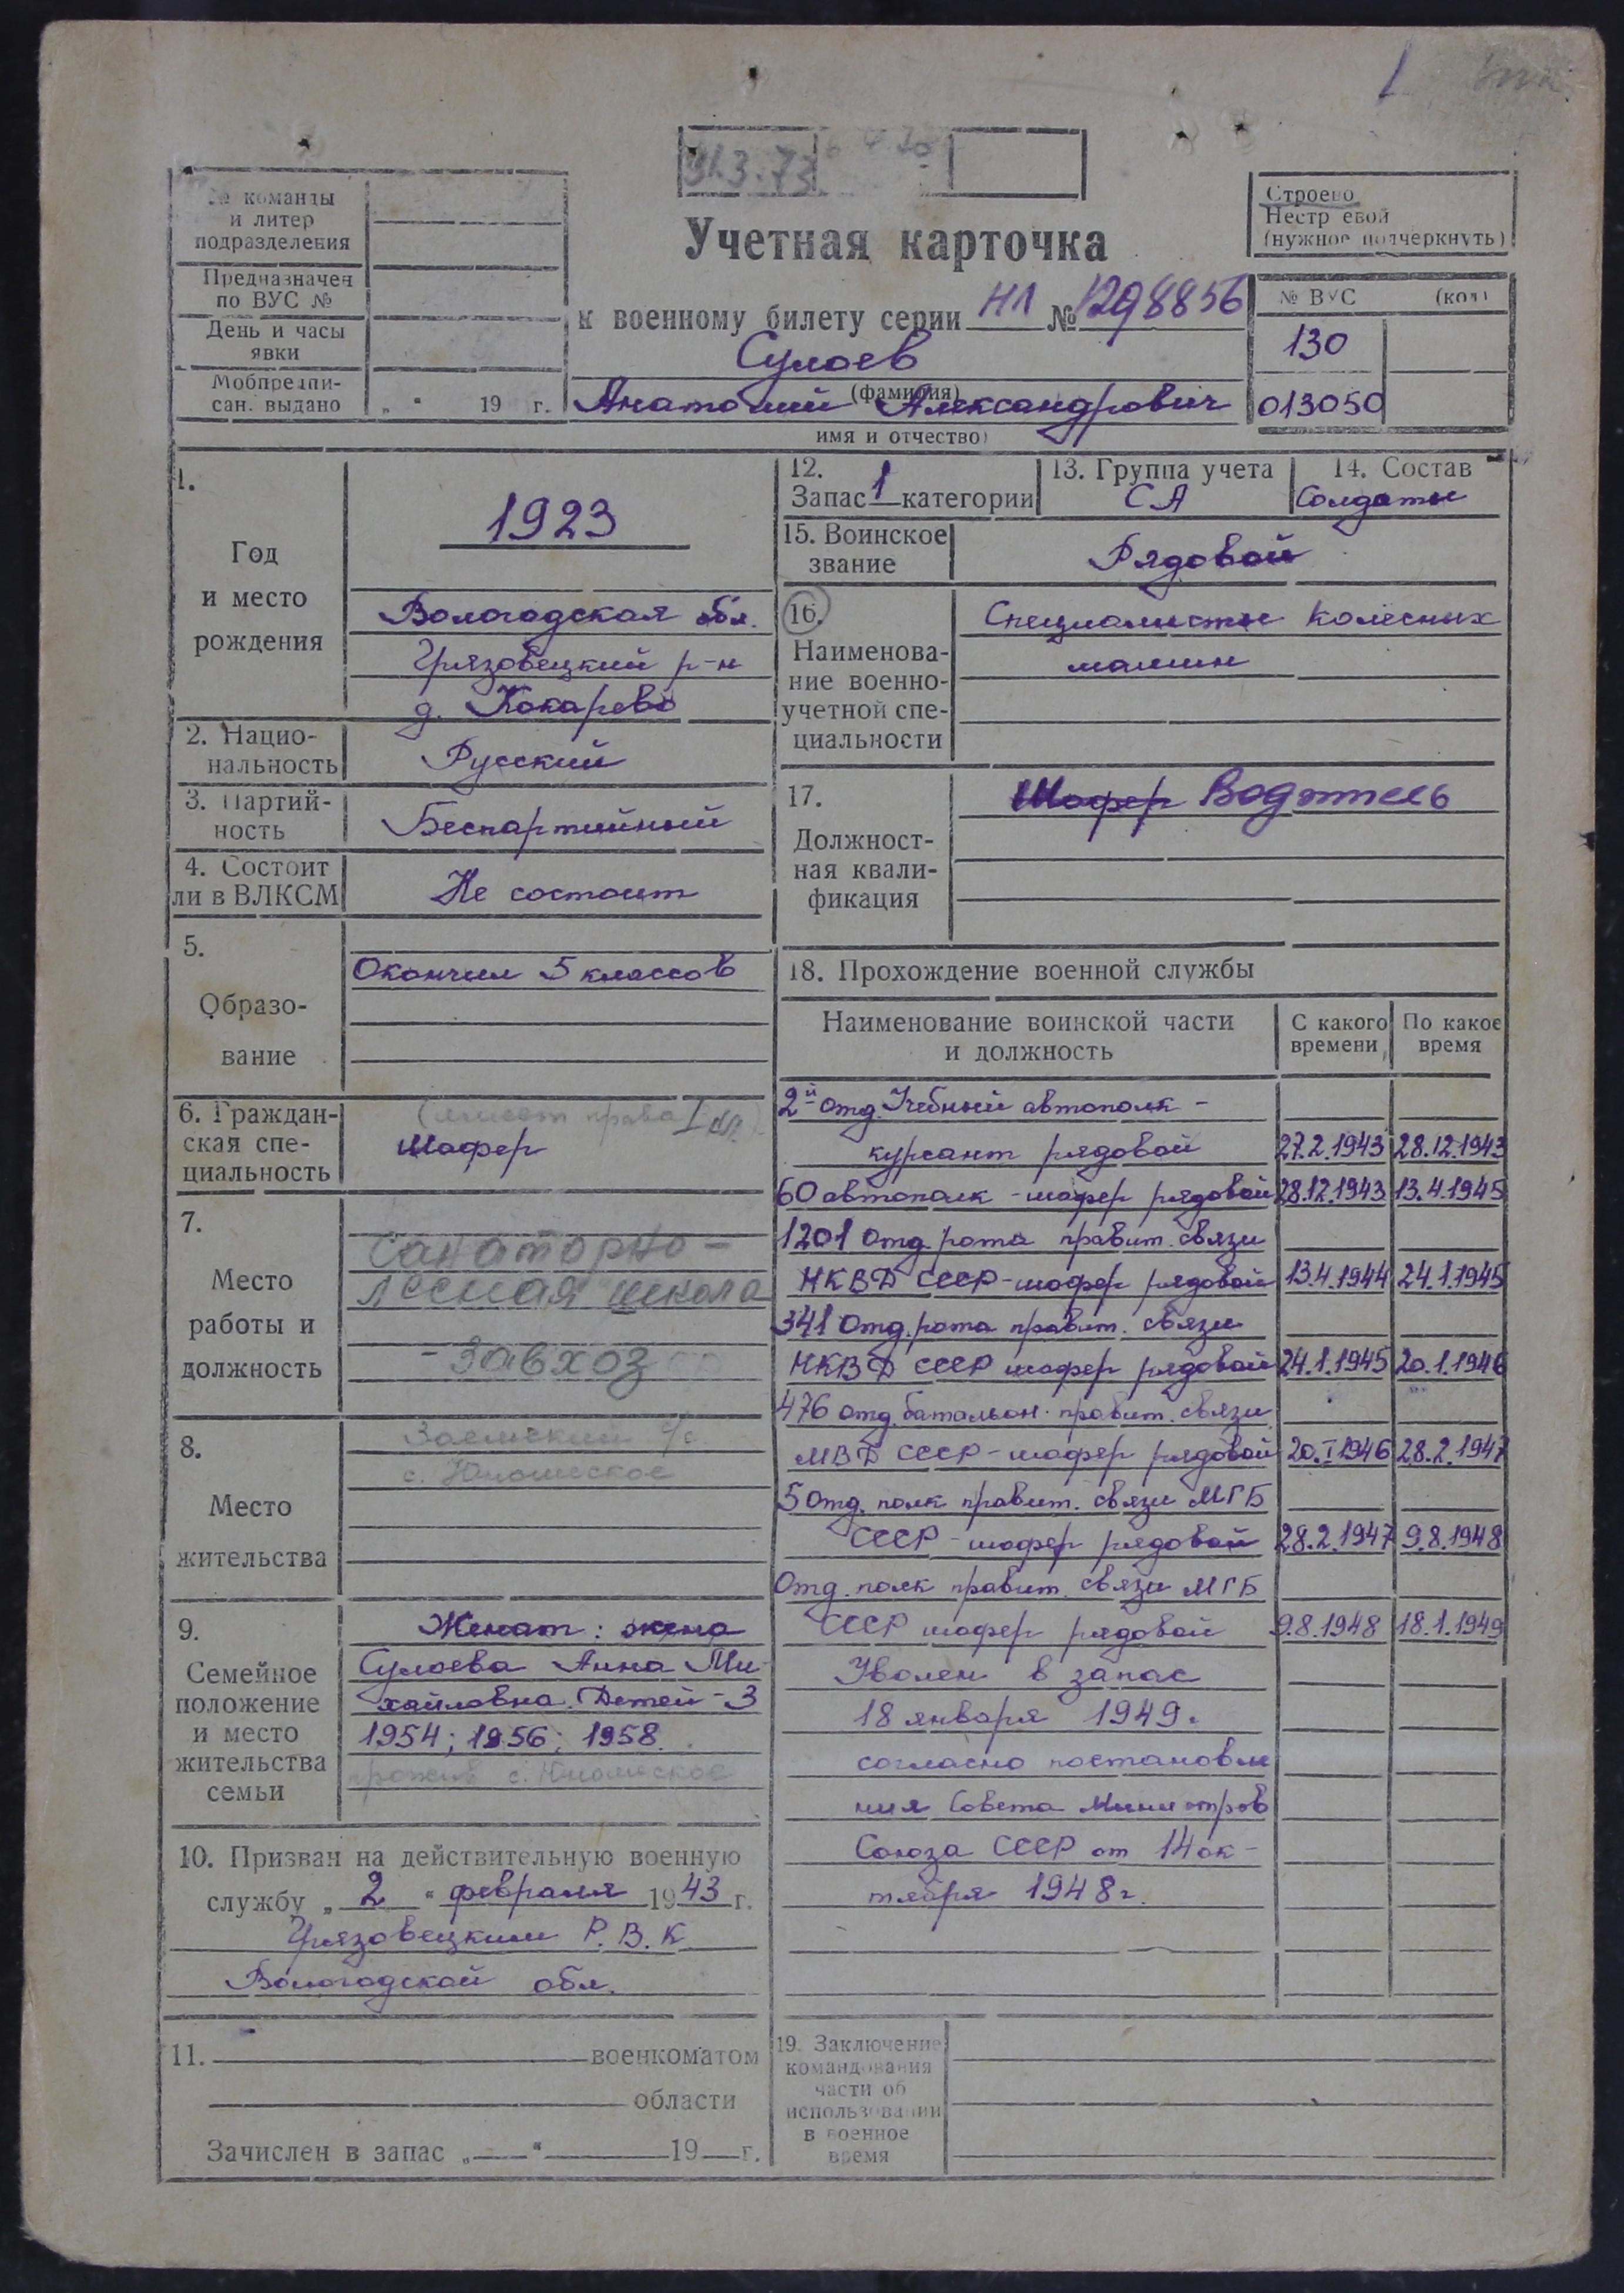 31.3.73
№ команды
и литер
подразделения
Предназначен
по ВУС №
День и часы
явки
Мобпредпи-
сан. выдано „ “ 19 г.
Учетная карточка
к военному билету серии НЛ № 1298856
Сулоев
(фамилия)
Анатолий Александрович
имя и отчество)
Строево
Нестр евой
(нужное подчеркнуть)
№ ВУС (код)
130
013050
1.
Год
и место
рождения
1923
Вологодская обл.
Грязовецкий р-н
д. Кокарево
2. Нацио-
нальность
Русский
3. Партий-
ность
Беспартийный
4. Состоит
ли в ВЛКСМ
Не состоит
5.
Образо-
вание
Окончил 5 классов
6. Граждан-
ская спе-
циальность
(имеет права I кл.)
Шофер
7.
Место
работы и
должность
Санаторно-
лесная школа
- завхоз
8.
Место
жительства
с. Юношеское
9.
Семейное
положение
и место
жительства
семьи
Женат: жена
Сулоева Анна Ми
хайловна. Детей - 3
1954; 1956; 1958.
с. Юношеское
10. Призван на действительную военную
службу „ 2 “ февраля 1943 г.
Грязовецким Р.В.К
Вологодской обл.
11. военкоматом
области
Зачислен в запас „ “ 19 г.
12.
Запас 1 категории
13. Группа учета
СА
14. Состав
Солдаты
15. Воинское
звание
Рядовой
16.
Наименова-
ние военно-
учетной спе-
циальности
Специалисты колесных
машин
17.
Должност-
ная квали-
фикация
Шофер Водитель
18. Прохождение военной службы
Наименование воинской части
и должность
С какого
времени
По какое
время
2й отд. Учебный автополк -
курсант рядовой 27.2.1943 28.12.1943
60 автополк - шофер рядовой 28.12.1943 13.4.1945
1201 отд. рота правит. связи
НКВД СССР - шофер рядовой 13.4.1944 24.1.1945
341 отд. рота правит. связи
НКВД СССР шофер рядовой 24.1.1945 20.1.1946
476 отд. батальон правит. связи
МВД СССР - шофер рядовой 20.I.1946 28.2.1947
5 отд. полк правит. связи МГБ
СССР - шофер рядовой 28.2.1947 9.8.1948
Отд. полк правит. связи МГБ
СССР шофер рядовой 9.8.1948 18.1.1949
Уволен в запас
18 января 1949г
согласно постановле
ния Совета Министров
Союза СССР от 14 ок-
тября 1948г.
19. Заключение
командования
части об
использовании
в военное
время